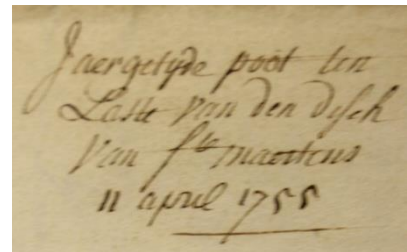 Jaergetyde poot ten
Laste van den disch
van Ste maertens
11 april 1755